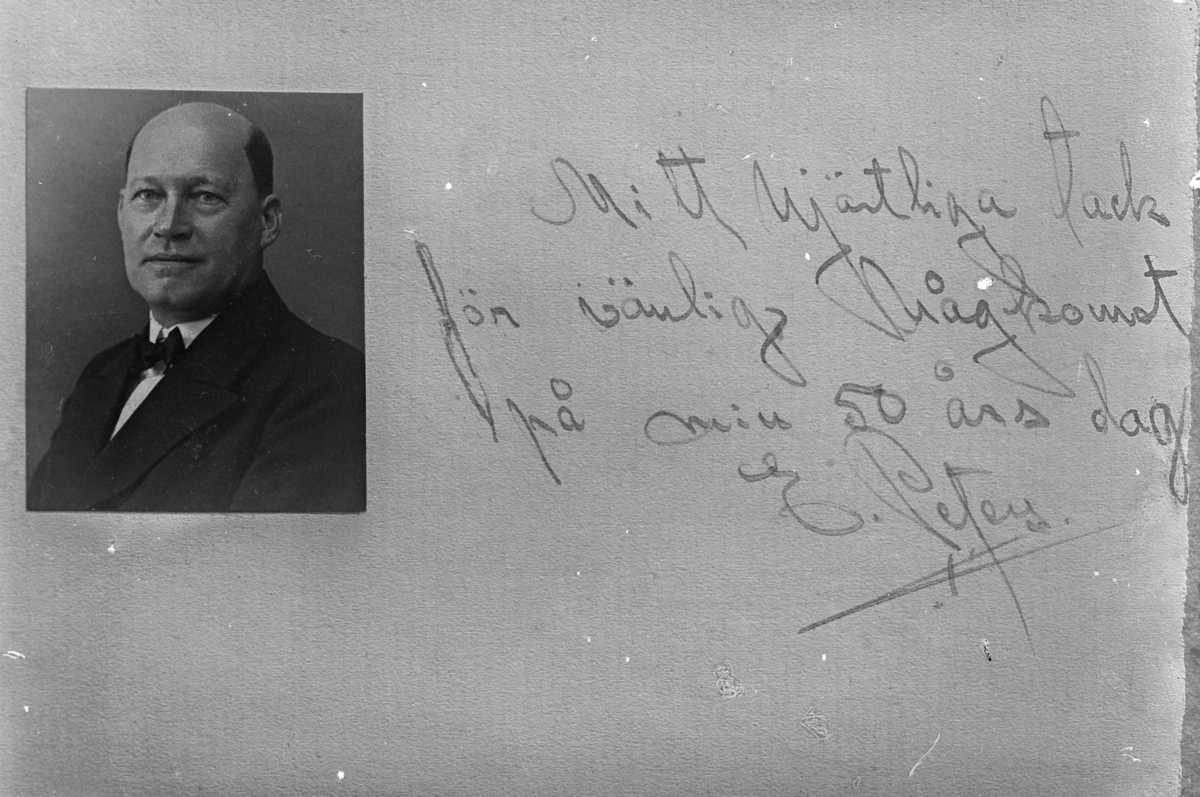 Mitt hjärtliga tack
för vänlig hågkomst
på min 50 års dag
E. Peters.